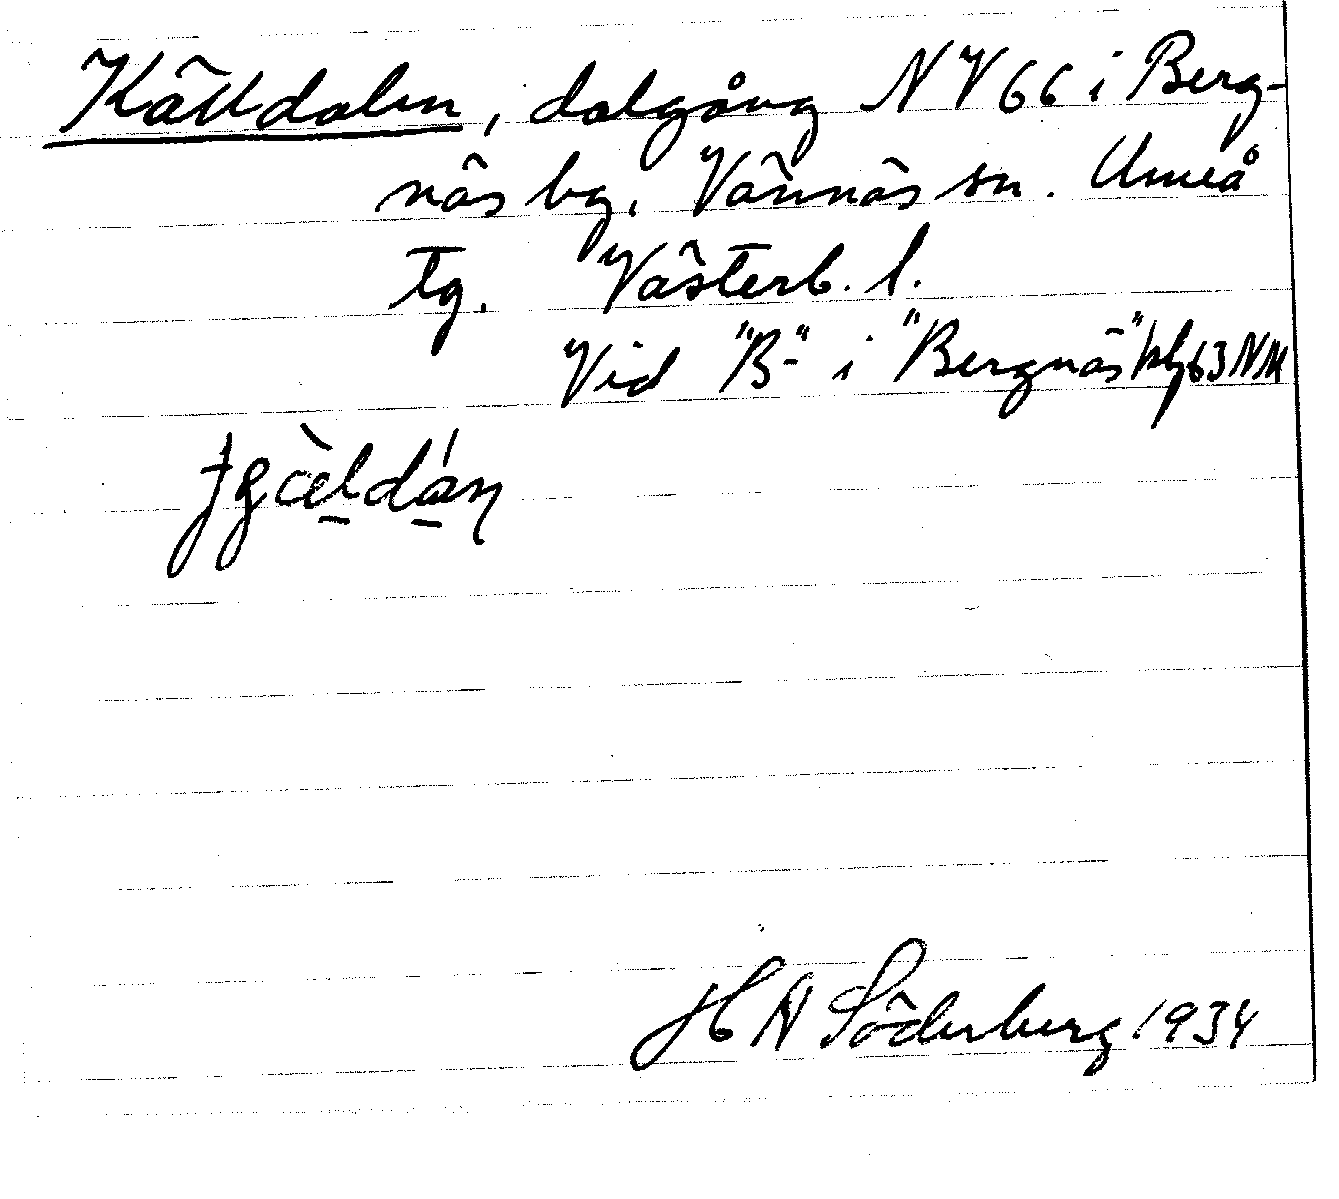 Källdalen, dalgång NV 66 i Berg-
näs by, Vännäs sn. Umeå
tg. Västerb. l.
Vid "B-" i "Bergnäs" kbl 63 NM
H A Söderberg 1934